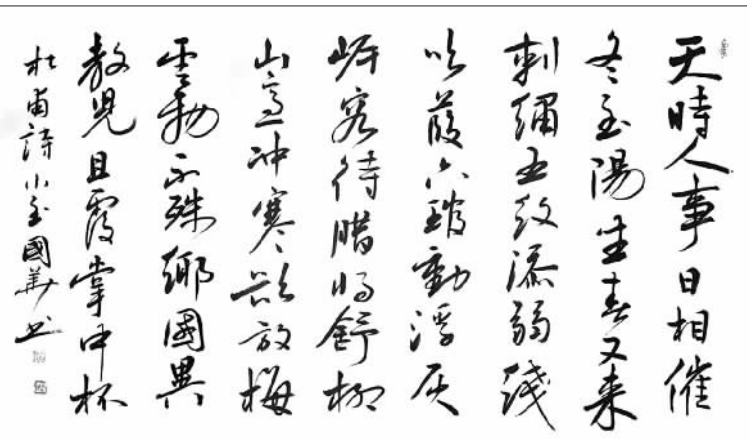 天時人事日相催
冬至陽生春又来
刺繡五紋添弱綫
吹葭六琯動浮灰
岸容待腊將舒柳
山意冲寒欲放梅
雲物不殊鄉國異
教兒且覆掌中杯
杜甫詩小至國華书